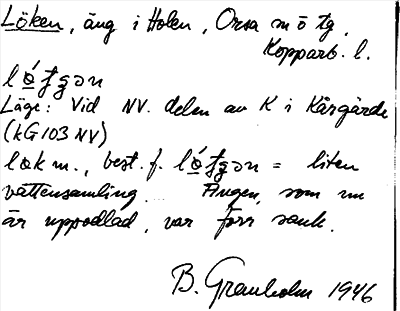 Löken, äng i Holen, Orsa sn ö tg,
Kopparb. l.
lǿʈʂən
Läge: Vid NV. delen av K i Kårgärde
(kG 103 NV)
løk m., best. f. lǿʈʂən = liten
vattensamling. Ängen, som nu
är uppodlad, var förr sank.
B. Granholm 1946